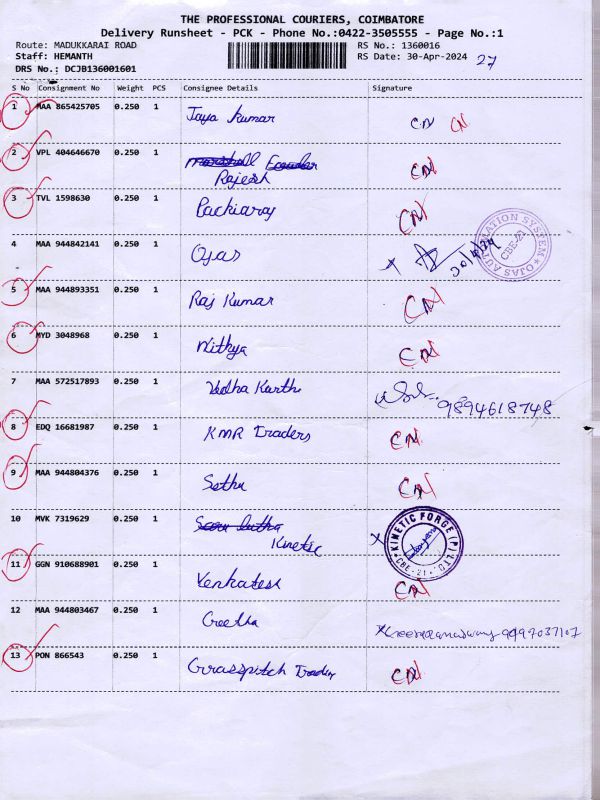 THE PROFESSIONAL COURIERS, COIMBATORE
Delivery Runsheet - PCK - Phone No.:0422-3505555 - Page No.:1
Route: MADUKKARAI ROAD RS No.: 1360016
Staff: HEMANTH RS Date: 30-Apr-2024 27
DRS No.: DCJB136001601
S No Consignment No Weight PCS Consignee Details Signature
1 MAA 865425705 0.250 1 Jaya Kumar CN CN
2 VPL 404646670 0.250 1 Rajesh CN
3 TVL 1598630 0.250 1 Packiaraj CN
4 MAA 944842141 0.250 1 Ojas x 30/4/24 OJAS AUTOMATION SYSTEM CBE-21
5 MAA 944893351 0.250 1 Raj Kumar CN
6 MYD 3048968 0.250 1 Nithya CN
7 MAA 572517893 0.250 1 Karthi 9894618748
8 EDQ 16681987 0.250 1 KMR Traders CN
9 MAA 944804376 0.250 1 Sathu CN
10 MVK 7319629 0.250 1 Kinetic x KINETIC FORGE (P) LTD CBE-21
11 GGN 910688901 0.250 1 Venkatesh CN
12 MAA 944803467 0.250 1 Geetha
13 PON 866543 0.250 1 CN